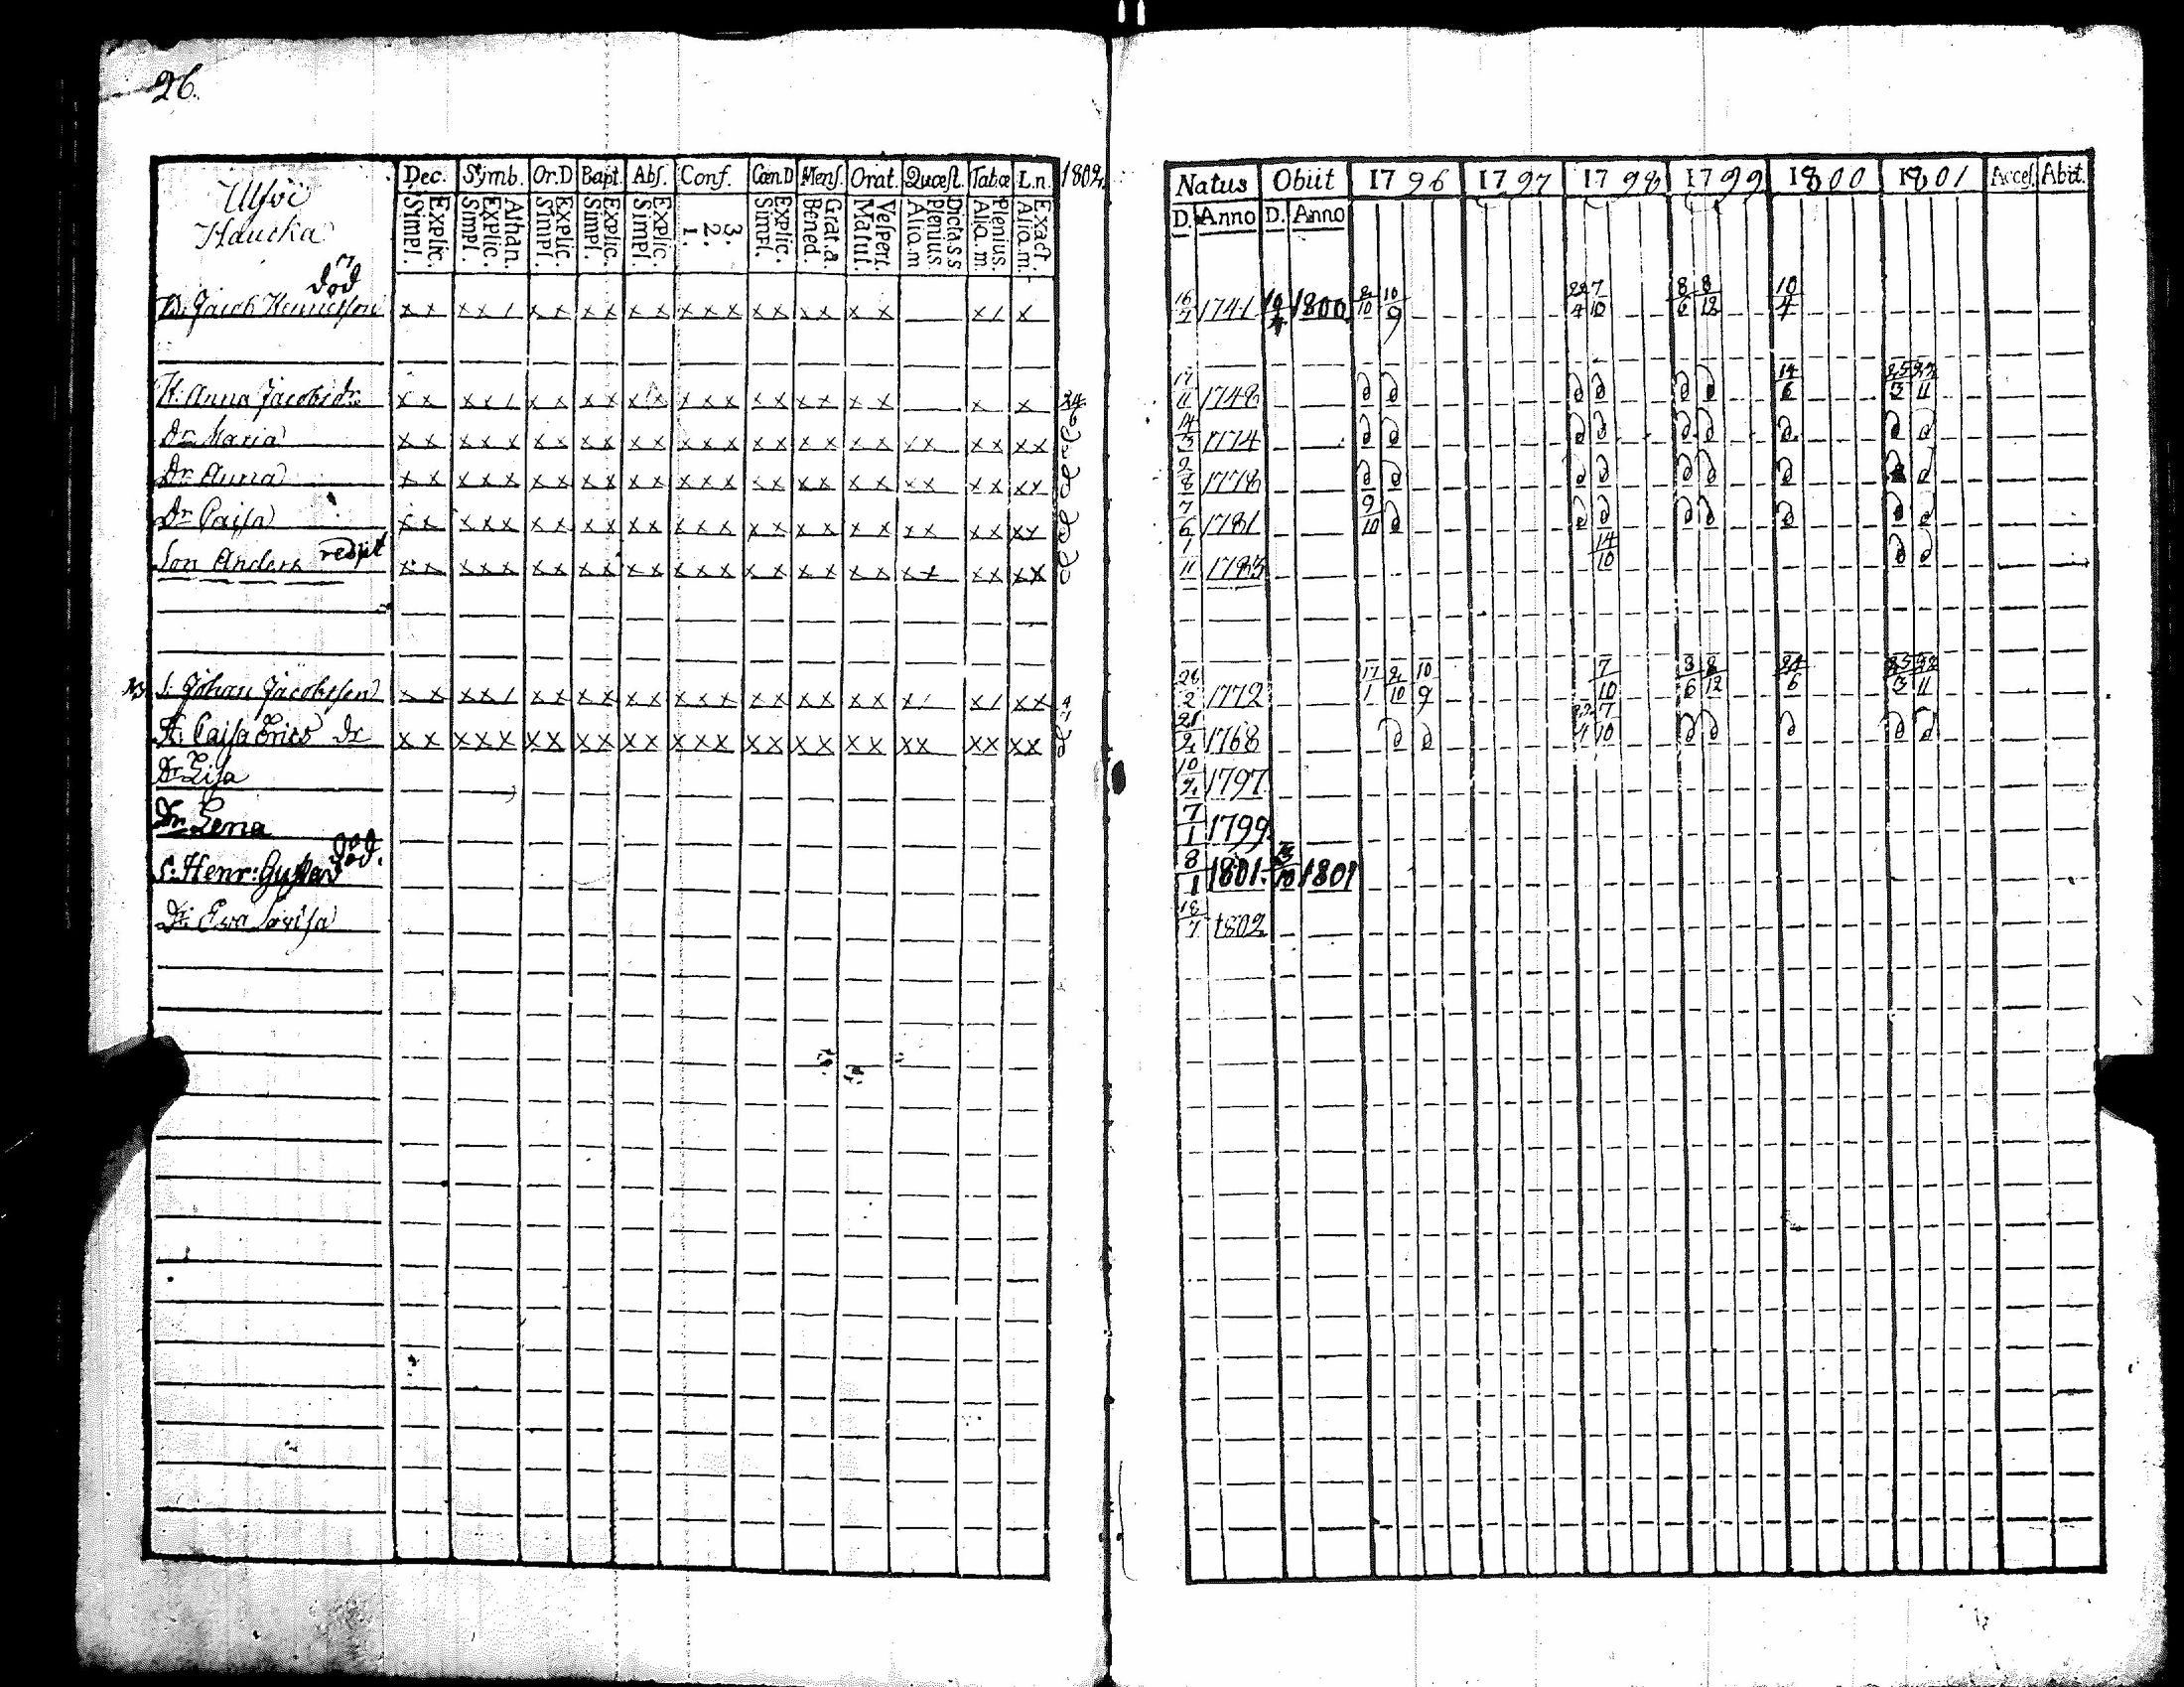 26.
Dec. Symb. Or.D Bapt. Abs. Conf. Cœn.D Mens. Orat. Quæst. Tabæ L.n. 1802
Explic. Simpl. Athan. Explic. Simpl. Explic. Simpl. Explic. Simpl. Explic. Simpl. 3. 2. 1. Explic. Simpl. Grat.a. Bened. Vespert. Matut. Dicta.s.s Plenius. Alio.m Plenius. Alio.m. Exact. Alio.m.
Haucka
död
Jacob Henricsson x x x x / x x x x x x x x x x x x x x x x / x
H. Anna Jacobsdr x x x x / x x x x x x x x x x x x x x x x x 24/6
Dr Maria x x x x x x x x x x x x x x x x x x x x x x x x x x
Dr Anna x x x x x x x x x x x x x x x x x x x x x x x x x x
Dr Caisa x x x x x x x x x x x x x x x x x x x x x x x x x x
Son Anders redijt x x x x x x x x x x x x x x x x x x x x x x x x x x
S. Johan Jacobsson x x x x / x x x x x x x x x x x x x x x x / x / x x
H. Caisa Erics Dr x x x x x x x x x x x x x x x x x x x x x x x x x x
Dr Lisa
Dr Lena
S: Henr: Gustav död.
Dr: Eva Lovisa
Natus Obiit 1796 1797 1798 1799 1800 1801 Acces. Abit.
D. Anno D. Anno
1741 1800 10/9 7/10 8/6 8/12 10/4
17/11 1748 14/6 25/3
14/3 1774
2/8 1778
7/6 1781 9/10
1/11 1783 14/10
26/2 1772 17/1 2/10 10/9 7/10 8/6 8/12 24/6 25/3
21/2 1768 7/10
10/2 1797.
7/1 1799.
8/1 1801. 1801
18/7 1802